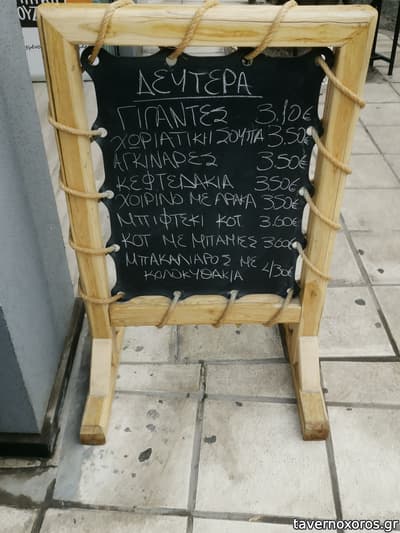 ΔΕΥΤΕΡΑ
ΓΙΓΑΝΤΕΣ 3.10€
ΧΩΡΙΑΤΙΚΗ ΣΟΥΠΑ 3.50€
ΑΓΚΙΝΑΡΕΣ 3.50€
ΚΕΦΤΕΔΑΚΙΑ 350€
ΧΟΙΡΙΝΟ ΜΕ ΑΡΑΚΑ 350€
ΜΠΙΦΤΕΚΙ ΚΟΤ 3.60€
ΚΟΤ ΜΕ ΜΠΑΜΙΕΣ 360€
ΜΠΑΚΑΛΙΑΡΟΣ ΜΕ
ΚΟΛΟΚΥΘΑΚΙΑ 4,30€
tavernoxoros.gr